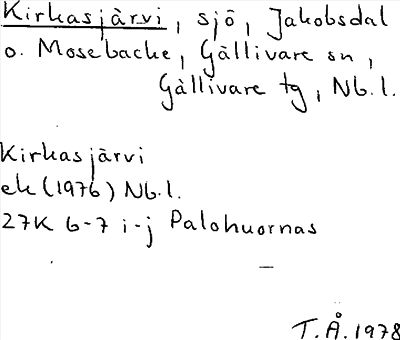 Kirkasjärvi, sjö, Jakobsdal
o. Mosebacke, Gällivare sn,
Gällivare tg, Nb.l.
Kirkasjärvi
ek (1976) Nb.l.
27K 6-7 i-j Palohuornas
T.Å. 1978